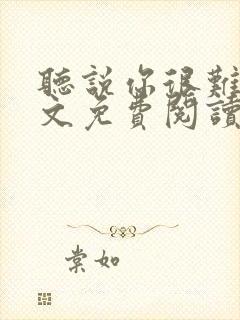 聽說你很難
文免費閱讀
棠如